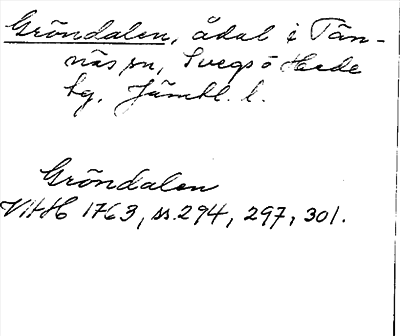 Gröndalen, ådal i Tän-
näs sn, Svegs o Hede
tg, Jämtl. l.
Gröndalen
VittH 1763, ss. 294, 297, 301.